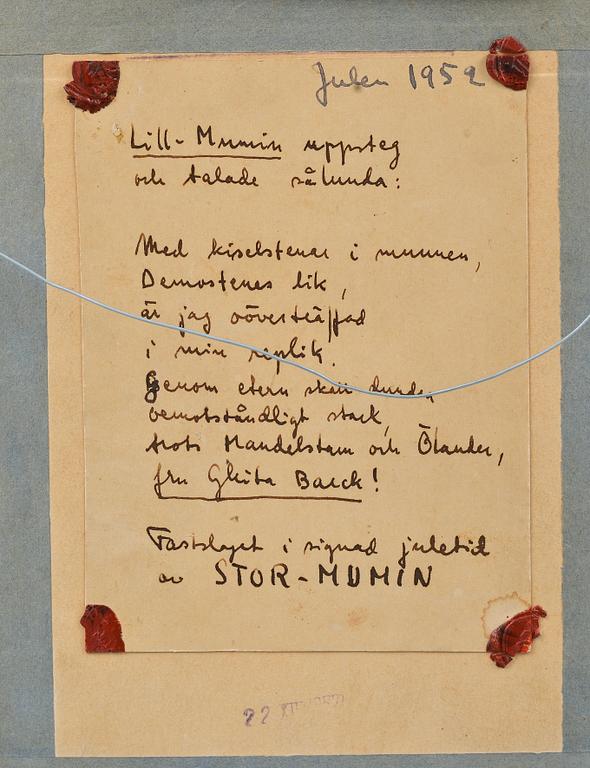 Julen 1952
Lill-Mumin uppsteg
och talade sålunda:
Med kiselstenar i munnen,
Demostenes lik,
är jag oöverträffad
i min replik.
Genom etern skall dundra
oemotståndligt stark,
trots Mandelstam och Ölander,
fru Ghita Barck!
Fastslaget i signad juletid
av STOR-MUMIN
22